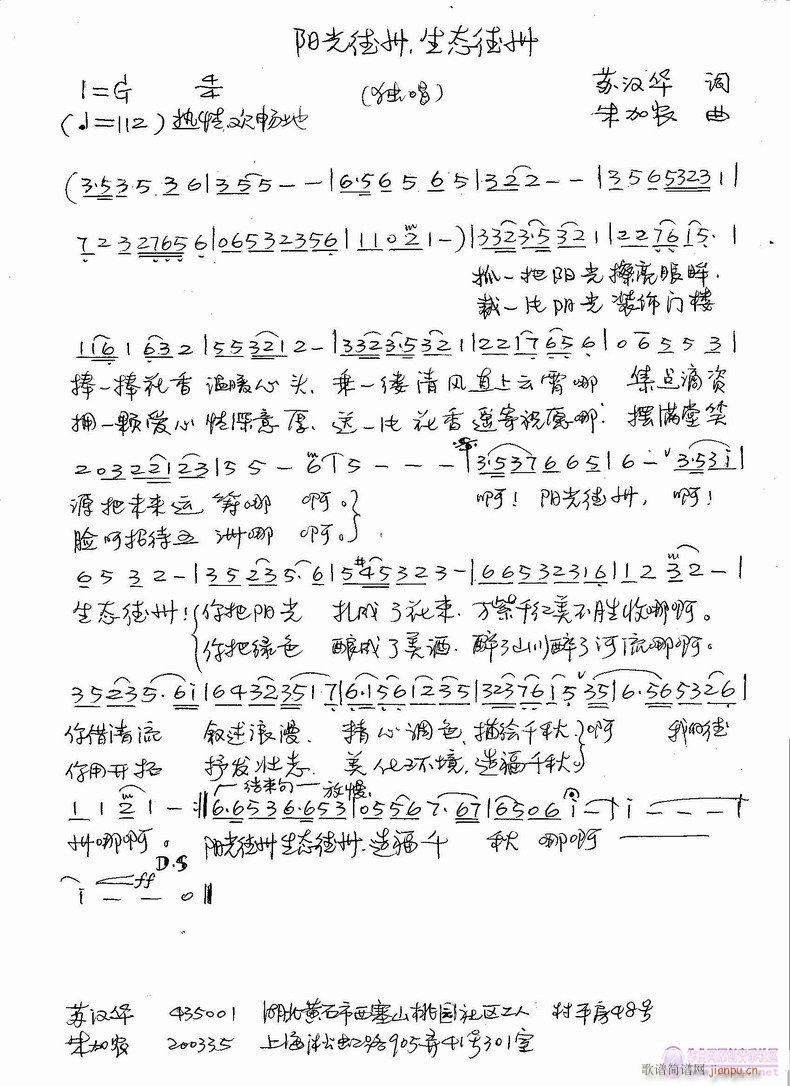 阳光德州,生态德州
1=G 4/4 (独唱) 苏汉华 词
(♩=112) 热情欢畅地 朱加农 曲
(3·535 36|355--|6·565 65|322--|35653231|
72327656|06532356|1102 1-)|3323·5321|227615·|
抓一把阳光擦亮眼眸.
裁一片阳光装饰门楼
1161 632|553212-|3323·5321|2217656|06553|
捧一捧花香温暖心头、乘一缕清风直上云霄哪 集点滴资
拥一颗爱心情深意厚、送一片花香遥寄祝愿哪. 摆满堂笑
20322123|55-6|5---|3·537665|6-3·53i|
源把未来运筹哪 啊。 啊! 阳光德州, 啊!
脸呵招待五洲哪 啊。
6532-|35235·6|5#45323-|66532316|1232-|
生态德州! 你把阳光 扎成了花束. 万紫千红美不胜收哪啊。
你把绿色 酿成了美酒. 醉了山川醉了河流哪啊。
35235·6i|64323517|6·1561235|32376i535|6·565326|
你借清流 叙述浪漫、 精心调色、描绘千秋、啊 我的德
你用开拓 抒发壮志、 美化环境,造福千秋。
结束句 放慢
1121-:‖6·6536·653|05567·67|6506i-|i---|
州哪啊。 阳光德州生态德州.造福千 秋 哪啊
D.S
ff
i--0‖
苏汉华 435001 湖北黄石市西塞山桃园社区工人村平房48号
朱加农 200335 上海淞虹路905弄41号301室
歌谱简谱网 jianpu.cn